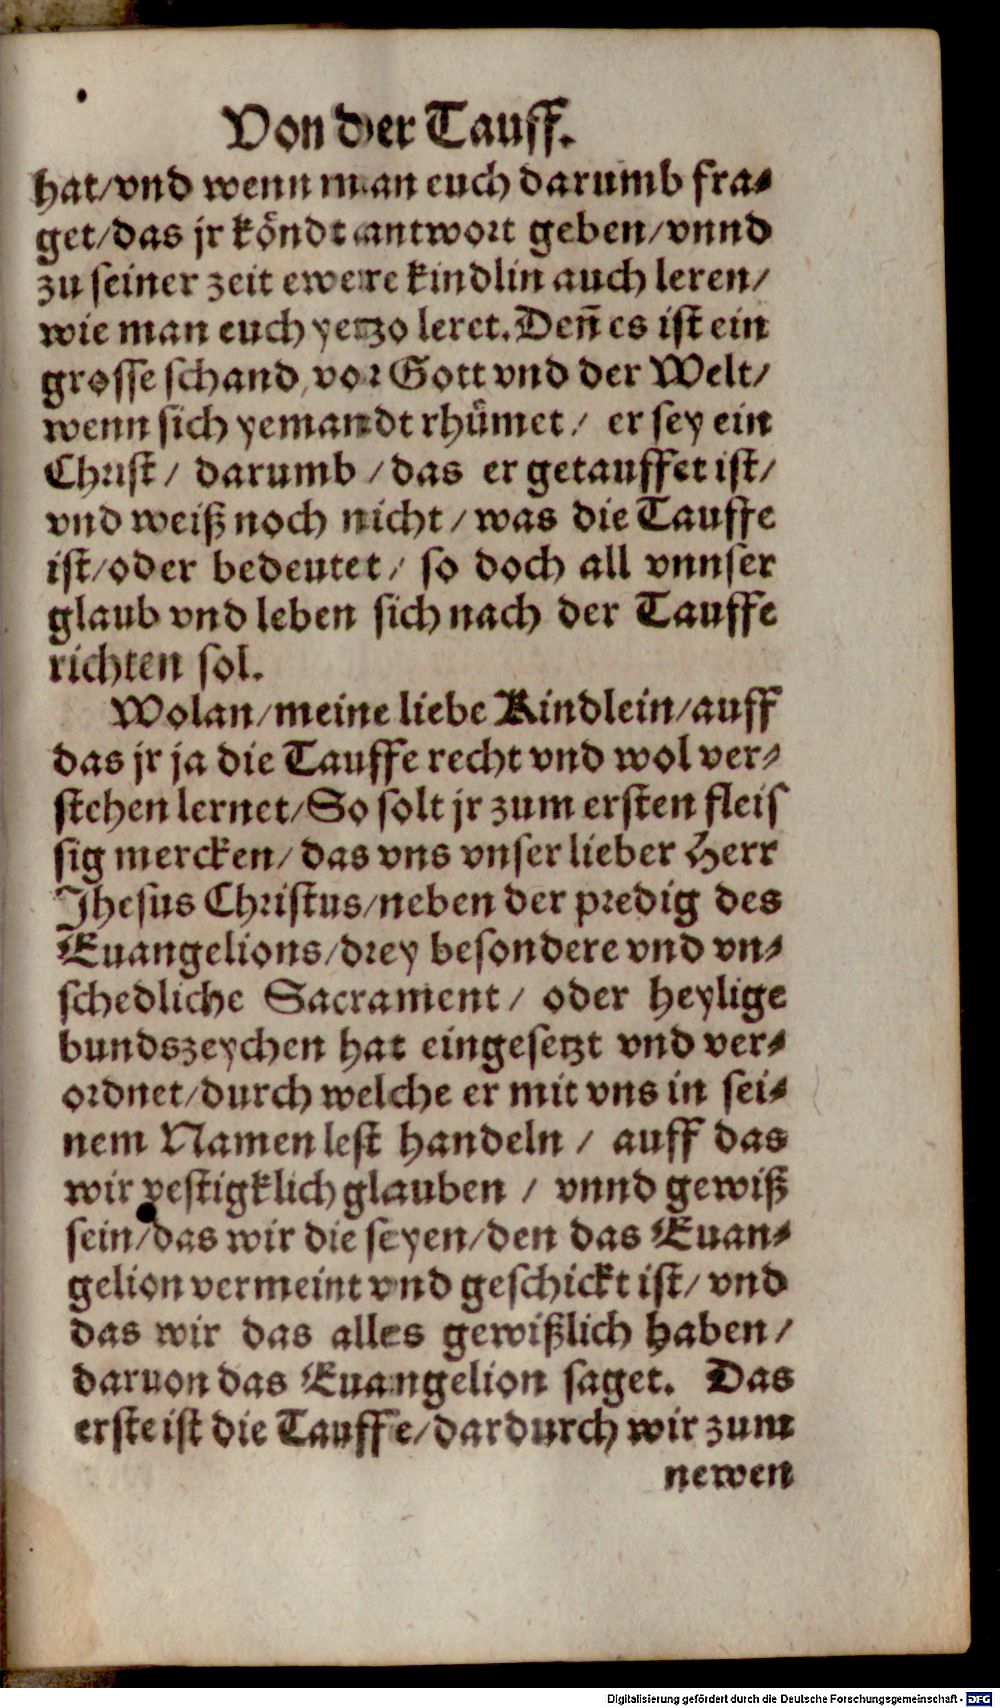 Von der Tauff.
hat/vnd wenn man euch darumb fra-
get/das jr köndt antwort geben/vnnd
zu seiner zeit ewere kindlin auch leren/
wie man euch yetzo leret. Deñ es ist ein
grosse schand vor Gott vnd der Welt/
wenn sich yemandt rhümet/ er sey ein
Christ/ darumb/das er getauffet ist/
vnd weiß noch nicht/was die Tauffe
ist/oder bedeutet/ so doch all vnnser
glaub vnd leben sich nach der Tauffe
richten sol.
Wolan/meine liebe Kindlein/auff
das jr ja die Tauffe recht vnd wol ver-
stehen lernet/So solt jr zum ersten fleis
sig mercken/das vns vnser lieber Herr
Jhesus Christus/neben der predig des
Euangelions/drey besondere vnd vn-
schedliche Sacrament/ oder heylige
bundszeychen hat eingesetzt vnd ver-
ordnet/durch welche er mit vns in sei-
nem Namen lest handeln/ auff das
wir vestigklich glauben/ vnnd gewiß
sein/das wir die seyen/den das Euan-
gelion vermeint vnd geschickt ist/ vnd
das wir das alles gewißlich haben/
daruon das Euangelion saget. Das
erste ist die Tauffe/dardurch wir zum
newen
Digitalisierung gefördert durch die Deutsche Forschungsgemeinschaft - DFG